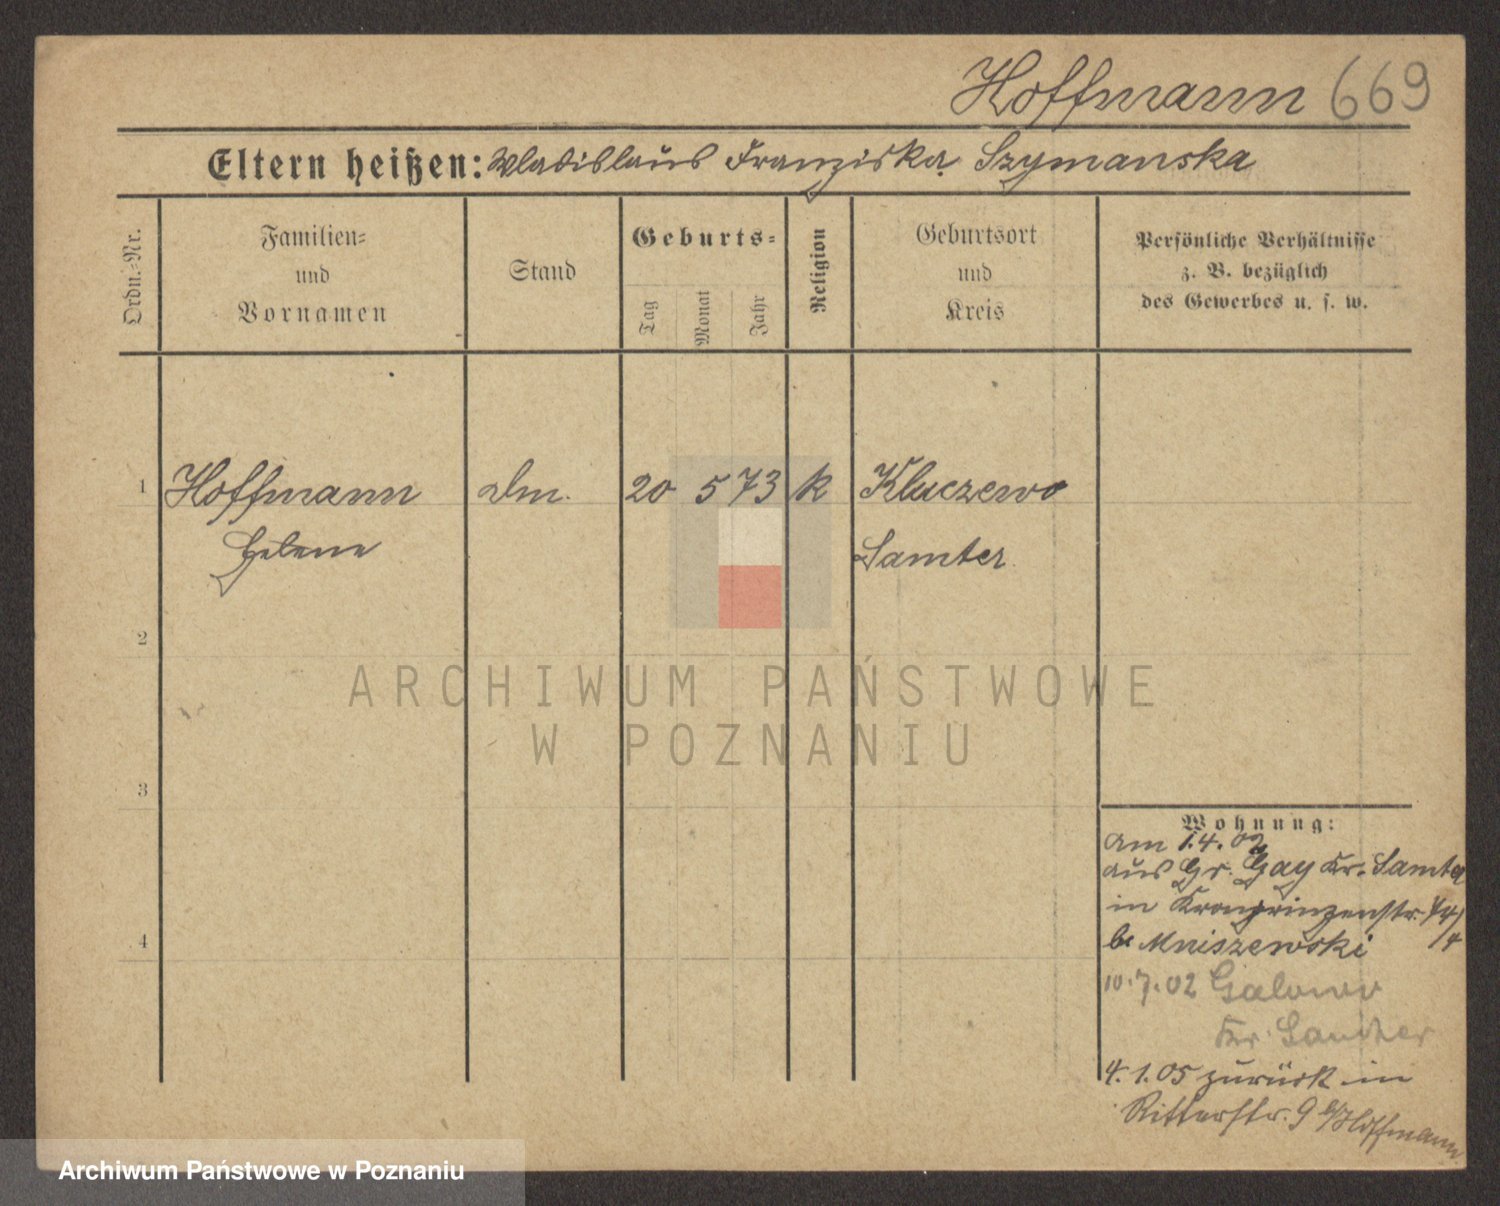 Hoffmann 669
Eltern heißen: Wladislaus Franziska Szymanska
Ordn.-Nr.
Familien-
und
Vornamen
Stand
Geburts-
Tag
Monat
Jahr
Religion
Geburtsort
und
Kreis
Persönliche Verhältnisse
z. B. bezüglich
des Gewerbes u. s. w.
1 Hoffmann 20 5 73 k Kluczewo
Helene Samter
2
3
4
Wohnung:
am 1.4.02
aus Gr. Gay Kr. Samter
in Kronprinzenstr.
b. Mniszewski
10.7.02 Galowo
Kr. Samter
4.1.05 zurück in
Ritterstr. 9 b/Hoffmann
ARCHIWUM PAŃSTWOWE
W POZNANIU
Archiwum Państwowe w Poznaniu